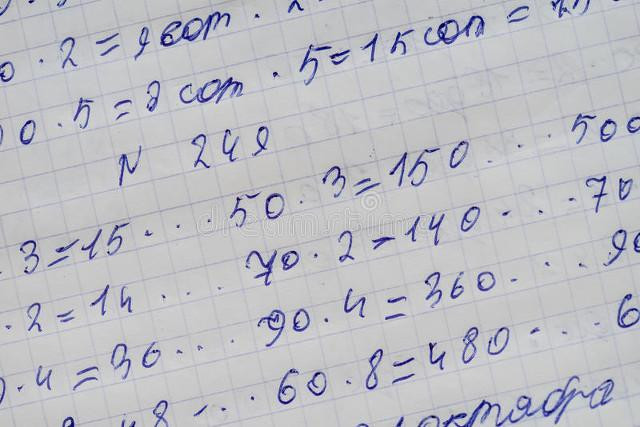 0 · 2 = 9 сот · 2
0 · 5 = 3 сот · 5 = 15 сот =
N 249
· 3 = 15 ... 50 · 3 = 150 ... 500
· 2 = 14 ... 70 · 2 = 140 ... 70
· 4 = 36 ... 90 · 4 = 360 ... 90
48 ... 60 · 8 = 480 ... 6
октября
dreamstime